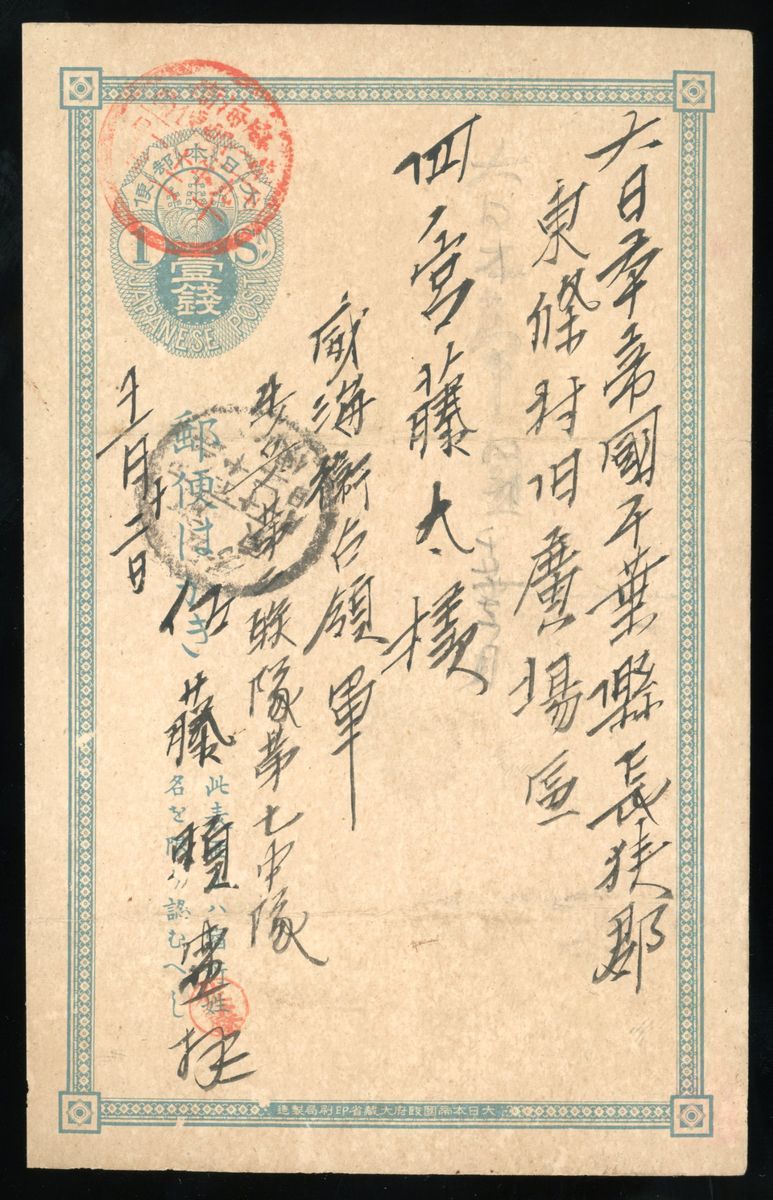 大日本帝國千葉縣長狭郡
東條村旧廣場區
四宮藤太様
威海衛占領軍
歩兵第二聯隊第七中隊
佐藤
十一月十二日
大日本郵便
1 S
壹錢
JAPANESE POST
郵便はがき
此表
名を 認むへし
大日本帝國政府大藏省印刷局製造